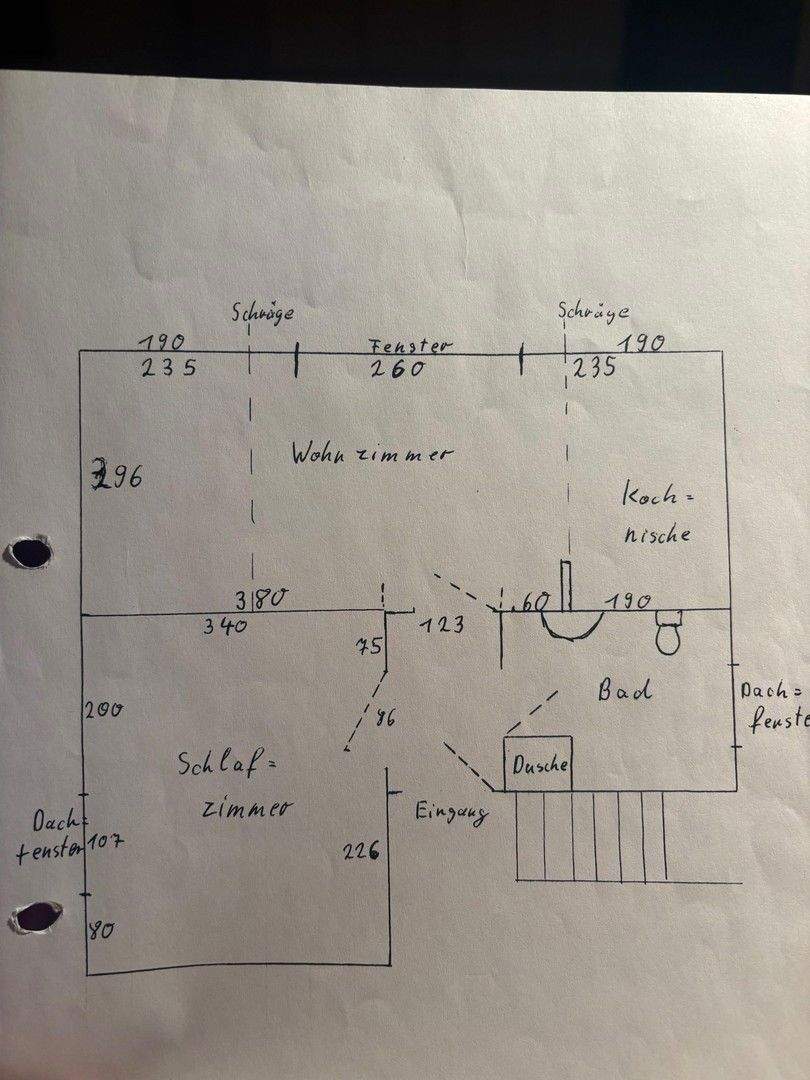 Schräge
Schräge
190
Fenster
190
235
260
235
Wohnzimmer
296
Koch=
nische
3180
60
190
340
123
75
200
86
Bad
Dach=
fenste
Schlaf=
zimmer
Dusche
Dach=
fenster
107
Eingang
226
80